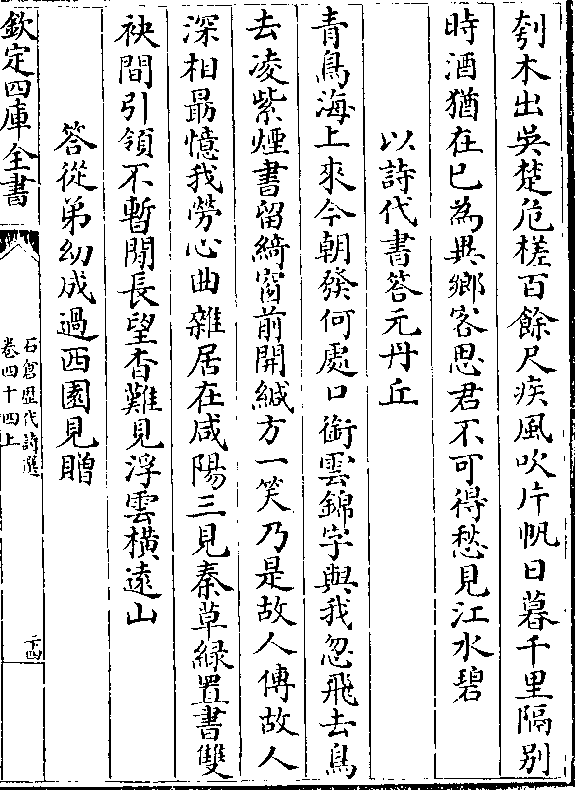 刳木出吳楚危槎百餘尺疾風吹片帆日暮千里隔别
時酒猶在已為異鄉客思君不可得愁見江水碧
以詩代書答元丹丘
青鳥海上來今朝發何處口銜雲錦字與我忽飛去鳥
去凌紫煙書留綺窗前開緘方一笑乃是故人傳故人
深相勗憶我勞心曲離居在咸陽三見秦草緑置書雙
袂間引領不暫閒長望杳難見浮雲橫遠山
答從弟幼成過西園見贈
欽定四庫全書
石倉歷代詩選
卷四十四上
二十四